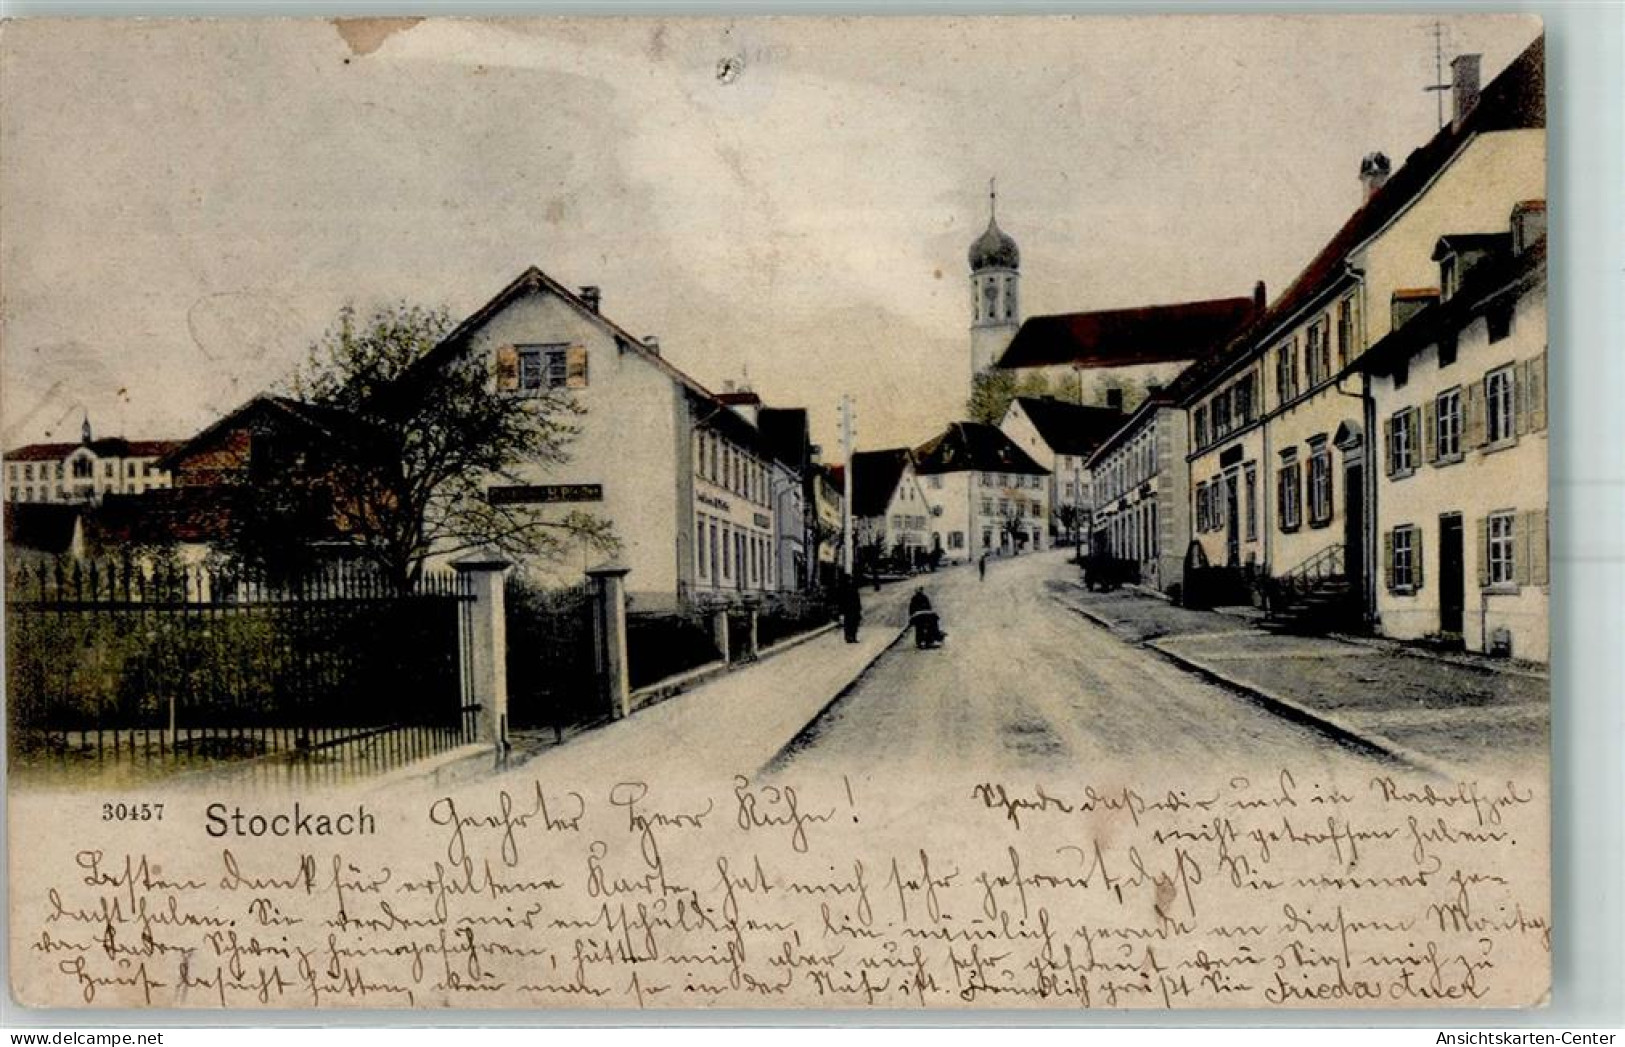 30457 Stockach Geehrter Herr Kuhn!
Schade daß wir uns in Radolfzel
nicht getroffen haben.
Besten Dank für erhaltene Karte, hat mich sehr gefreut, daß Sie meiner ge-
dacht haben. Sie werden mir entschuldigen, bin nämlich gerade an diesem Montag
von Schweiz heimgefahren, hätte mich aber auch sehr gefreut wen Sie mich zu
Hause besucht hätten, wen man so in der Nähe ist. Freundlich grüßt Sie Frieda Auer
Ansichtskarten-Center